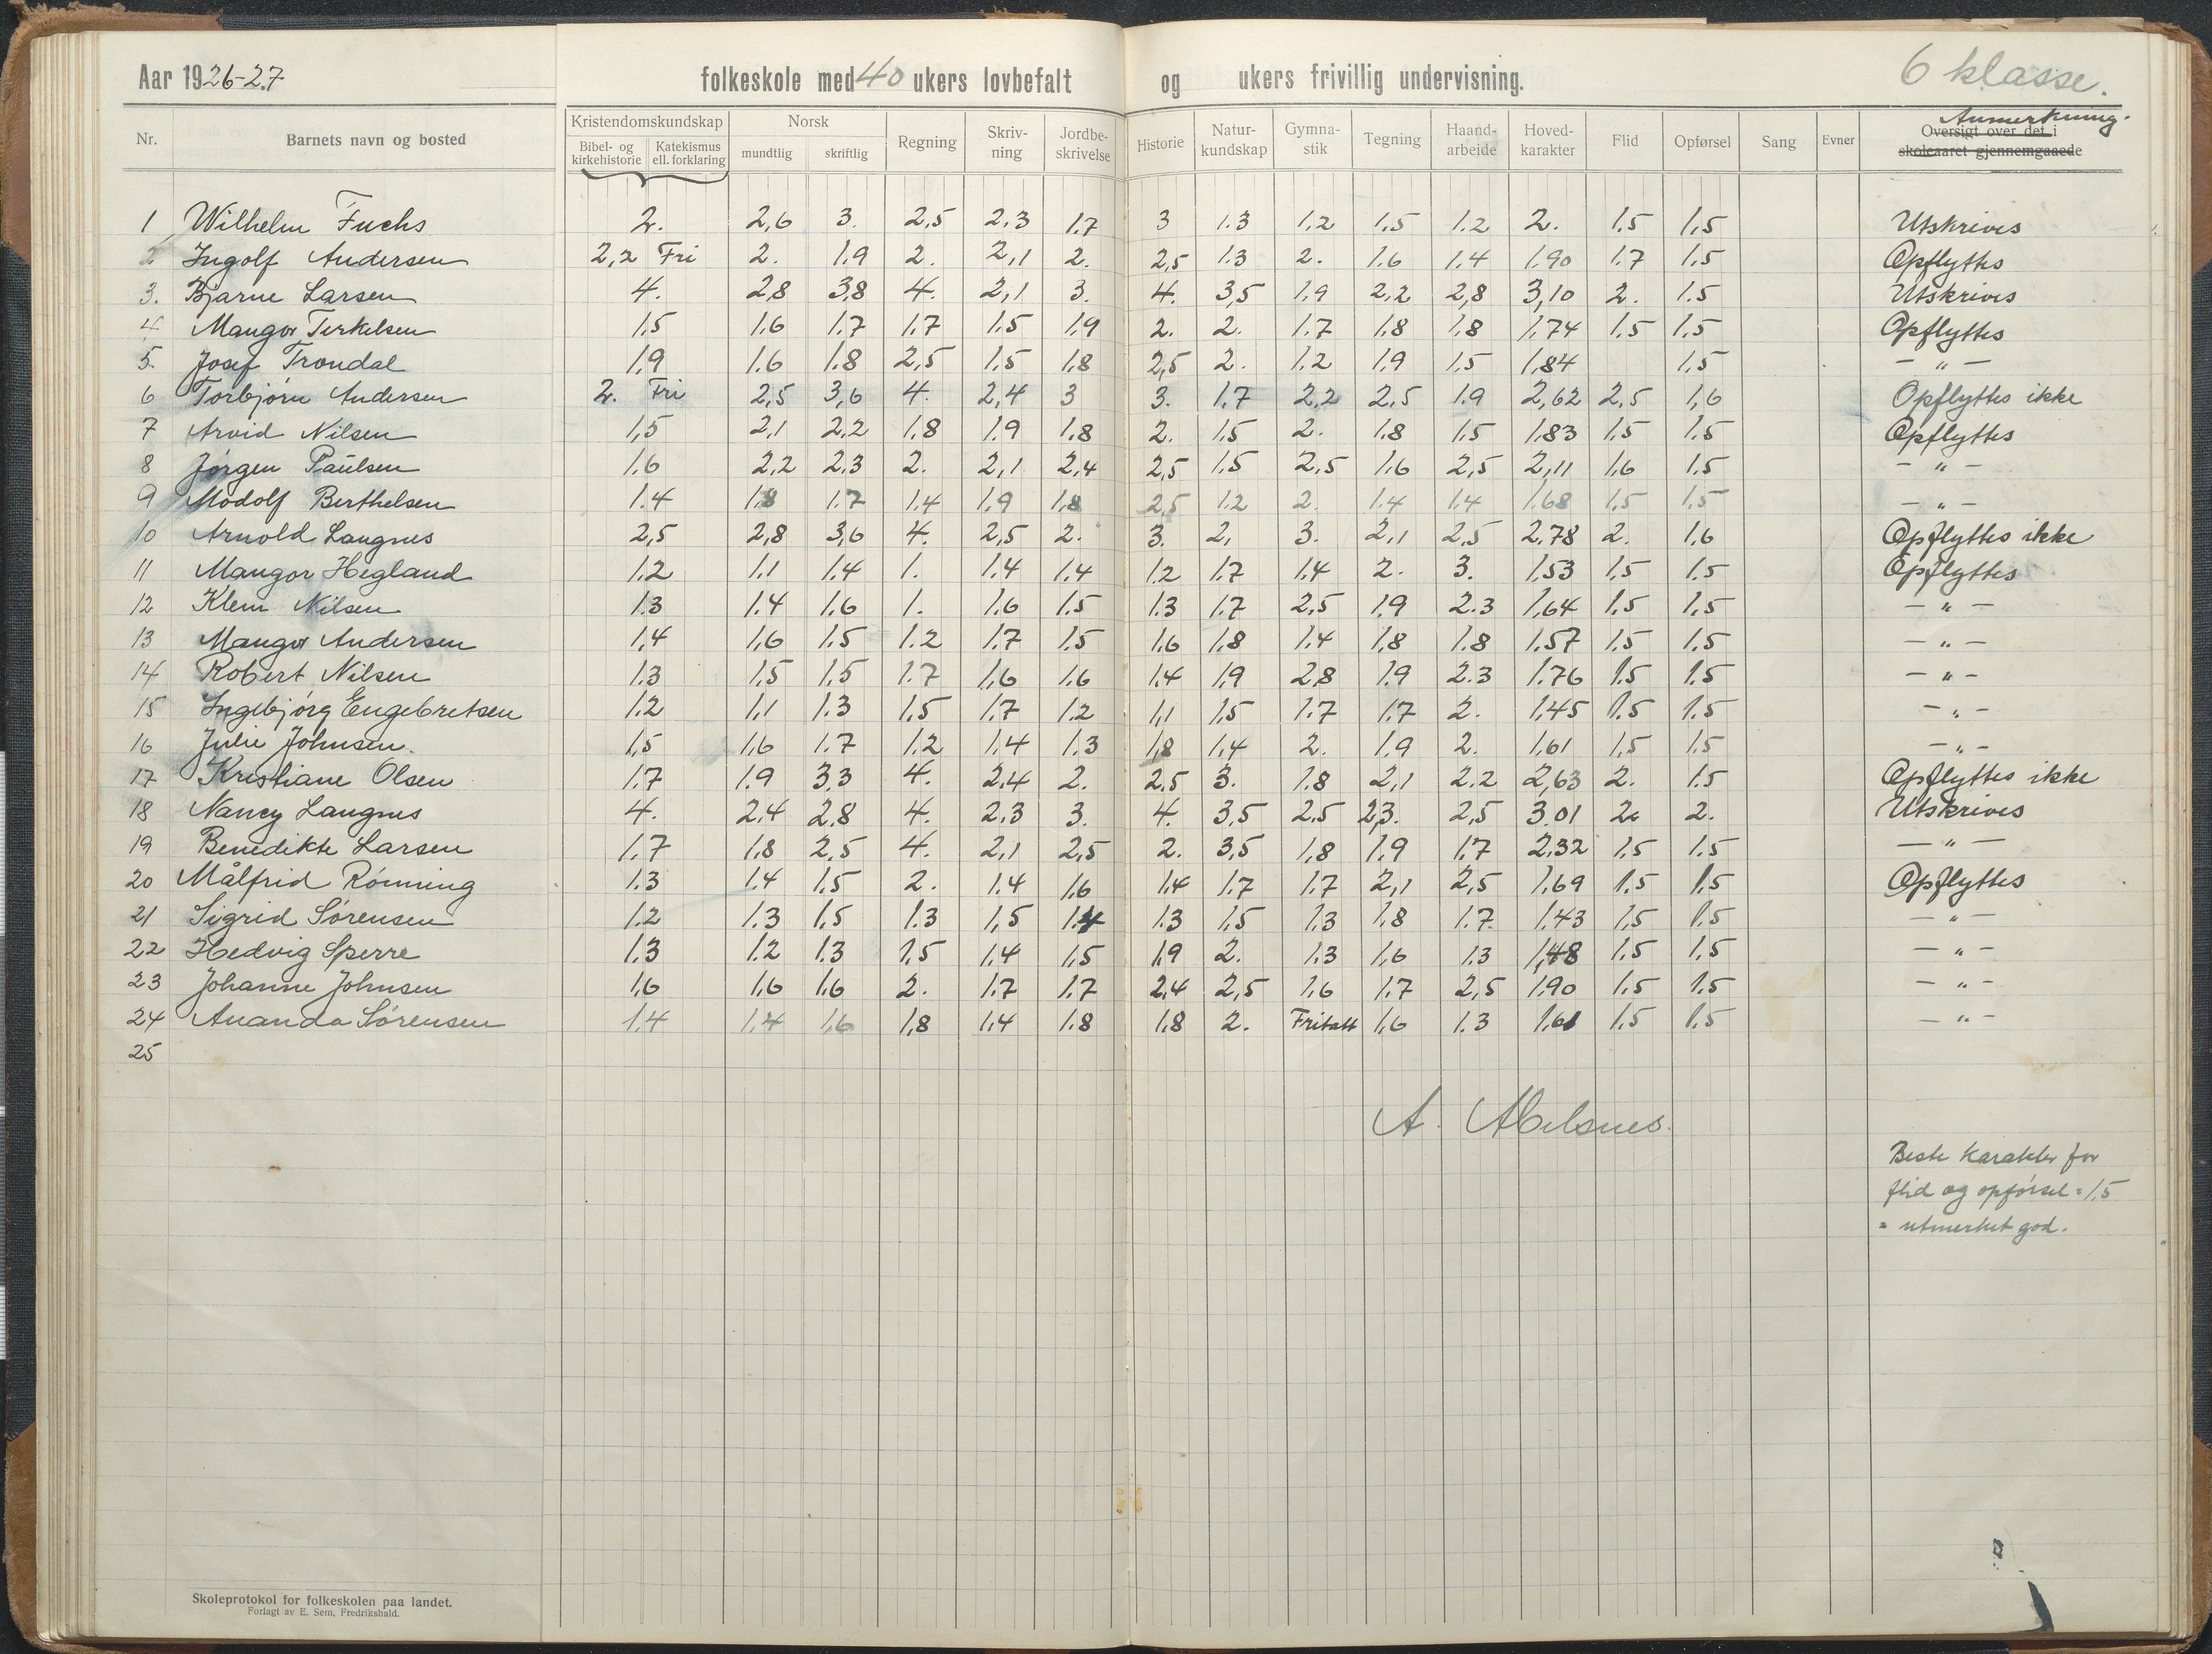 Aar 1926-27 folkeskole med 40 ukers lovbefalt og ukers frivillig undervisning. 6 klasse.
Anmerkning.
Nr. Barnets navn og bosted Kristendomskundskap Bibel- og kirkehistorie Katekismus ell. forklaring Norsk mundtlig skriftlig Regning Skriv-ning Jordbe-skrivelse Historie Natur-kundskap Gymna-stik Tegning Haand-arbeide Hoved-karakter Flid Opførsel Sang Evner Oversigt over det i skoleaaret gjennemgaaede
1 Wilhelm Fuchs 2. 2,6 3. 2,5 2,3 1.7 3 1.3 1,2 1.5 1.2 2. 1.5 1,5 Utskrives
2 Ingolf Andersen 2,2 Fri 2. 1.9 2. 2,1 2. 2,5 1.3 2. 1.6 1.4 1.90 1.7 1.5 Opflyttes
3. Bjarne Larsen 4. 2,8 3,8 4. 2,1 3. 4. 3,5 1,9 2,2 2,8 3,10 2. 1.5 Utskrives
4 Mangor Terkelsen 1,5 1.6 1.7 1.7 1.5 1.9 2. 2. 1.7 1,8 1,8 1,74 1.5 1.5 Opflyttes
5. Josef Trondal 1,9 1.6 1.8 2,5 1.5 1,8 2,5 2. 1.2 1.9 1.5 1,84 1.5 - " -
6 Torbjørn Andersen 2. Fri 2,5 3,6 4. 2,4 3 3. 1.7 2,2 2.5 1.9 2,62 2,5 1,6 Opflyttes ikke
7 Arvid Nilsen 1,5 2,1 2,2 1.8 1.9 1.8 2. 1.5 2. 1.8 1.5 1,83 1.5 1.5 Opflyttes
8 Jørgen Paulsen 1.6 2,2 2,3 2. 2,1 2,4 2,5 1.5 2,5 1.6 2,5 2,11 1,6 1.5 - " -
9 Modolf Berthelsen 1.4 1,8 1.7 1,4 1,9 1,8 2,5 1.2 2. 1.4 1.4 1.68 1,5 1.5 - " -
10 Arnold Langnes 2,5 2,8 3,6 4. 2,5 2. 3. 2, 3. 2,1 2,5 2,78 2. 1,6 Opflyttes ikke
11 Mangor Hegland 1.2 1.1 1.4 1. 1.4 1,4 1.2 1.7 1.4 2. 3. 1,53 1.5 1.5 Opflyttes
12 Klem Nilsen 1.3 1.4 1.6 1. 1.6 1.5 1.3 1.7 2,5 1.9 2.3 1,64 1.5 1.5 - " -
13 Mangor Andersen 1,4 1,6 1.5 1.2 1.7 1.5 1.6 1,8 1.4 1,8 1.8 1.57 1.5 1.5 - " -
14 Robert Nilsen 1.3 1.5 1.5 1.7 1,6 1.6 1,4 1,9 2,8 1.9 2.3 1.76 1.5 1.5 - " -
15 Ingebjørg Engebretsen 1.2 1,1 1.3 1,5 1.7 1.2 1,1 1,5 1.7 1.7 2. 1,45 1.5 1.5 - " -
16 Julie Johnsen. 1,5 1,6 1.7 1.2 1,4 1.3 1,8 1,4 2. 1.9 2. 1,61 1,5 1.5 - " -
17 Kristiane Olsen 1.7 1.9 3,3 4. 2,4 2. 2,5 3. 1.8 2,1 2,2 2,63 2. 1.5 Opflyttes ikke
18 Nancy Langnes 4. 2,4 2,8 4. 2,3 3. 4. 3,5 2,5 2,3. 2,5 3.01 2. 2. Utskrives
19 Benedikte Larsen 1.7 1,8 2,5 4. 2,1 2,5 2. 3,5 1,8 1.9 1.7 2,32 1.5 1.5 - " -
20 Målfrid Rønning 1.3 1.4 1,5 2. 1.4 1.6 1.4 1.7 1.7 2,1 2,5 1,69 1.5 1.5 Opflyttes
21 Sigrid Sørensen 1.2 1.3 1,5 1.3 1,5 1.4 1.3 1,5 1.3 1,8 1.7. 1.43 1,5 1.5 - " -
22 Hedvig Sperre 1.3 1.2 1.3 1,5 1.4 1,5 1,9 2. 1.3 1,6 1.3 1,48 1.5 1.5 - " -
23 Johanne Johnsen 1,6 1,6 1,6 2. 1.7 1.7 2,4 2,5 1.6 1.7 2,5 1,90 1.5 1.5 - " -
24 Ananda Sørensen 1.4 1,4 1,6 1,8 1,4 1.8 1,8 2. Fritatt 1,6 1.3 1,61 1.5 1.5 - " -
25
Beste karakter for
flid og opførsel = 1,5
= utmerket god.
Skoleprotokol for folkeskolen paa landet.
Forlagt av E. Sem, Fredrikshald.